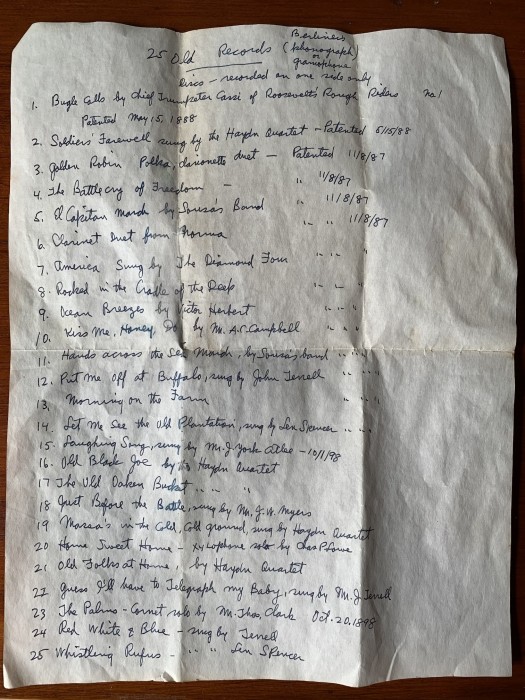 25 Old Records Berliners
(phonograph)
or
gramophone
Discs - recorded on one side only
1. Bugle Calls by Chief Trumpeter Cassi of Roosevelt's Rough Riders no 1
Patented May 15, 1888
2. Soldiers' Farewell sung by the Haydn Quartet - Patented 5/15/88
3. Golden Robin Polka, clarionette duet - Patented 11/8/87
4. The Battlecry of Freedom - " 11/8/87
5. El Capitan March by Sousa's Band " 11/8/87
6. Clarinet Duet from Norma " " 11/8/87
7. America Sung by The Diamond Four " " "
8. Rocked in the Cradle of the Deep " " "
9. Ocean Breezes by Victor Herbert " " "
10. Kiss Me, Honey, Do by M. A.C. Campbell " " "
11. Hands across the Sea March, by Sousa's band " " "
12. Put Me Off at Buffalo, sung by John Terrell " " "
13. Morning on the Farm " " "
14. Let Me See the Old Plantation, sung by Len Spencer " " "
15. Laughing Song, sung by M. J. York Atlee - 10/1/98
16. Old Black Joe by the Haydn Quartet
17 The Old Oaken Bucket " " "
18 Just Before the Battle, sung by Mr. J. W. Myers
19 Massa's in the Cold, Cold ground, sung by Haydn Quartet
20 Home Sweet Home - Xylophone solo by Chas P. Lowe
21 Old Folks at Home, by Haydn Quartet
22 Guess I'll have to Telegraph my Baby, sung by M. J. Terrell
23 The Palms - Cornet solo by Mr. Thos. Clark Oct. 20, 1898
24 Red White & Blue - sung by Terrell
25 Whistling Rufus - " " Len Spencer